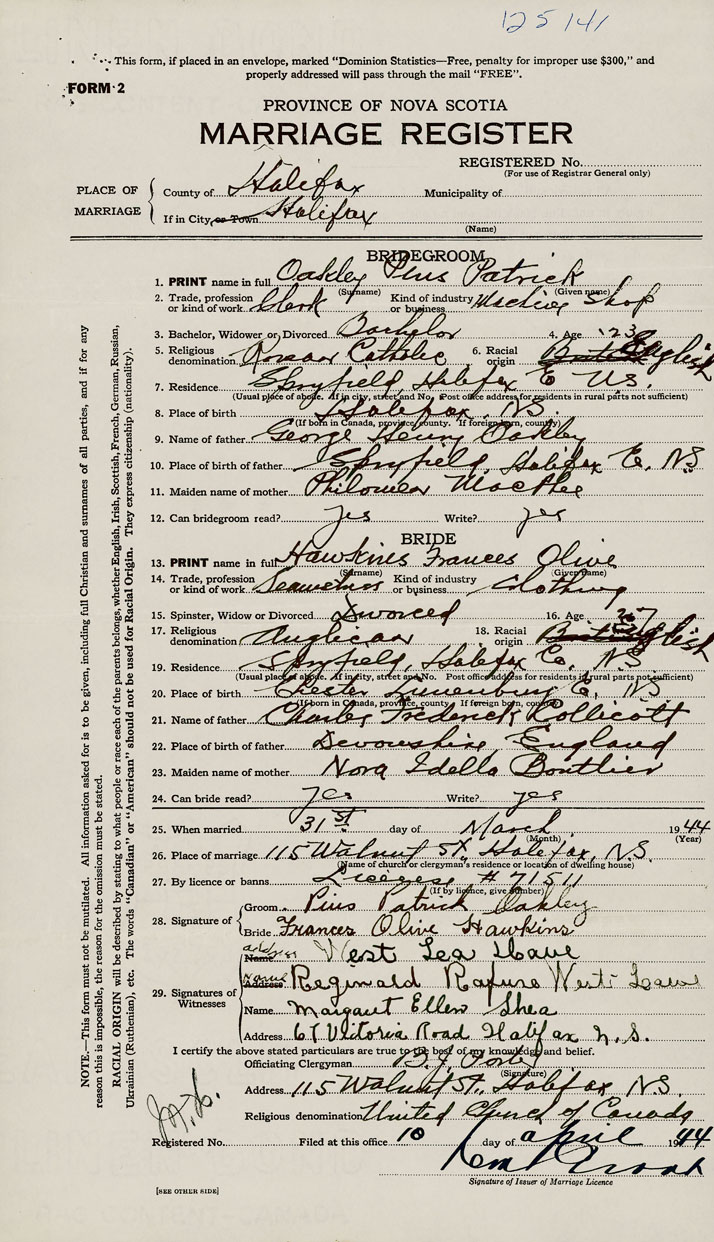 125141
This form, if placed in an envelope, marked “Dominion Statistics—Free, penalty for improper use $300,” and
properly addressed will pass through the mail “FREE”.
FORM 2
PROVINCE OF NOVA SCOTIA
MARRIAGE REGISTER
REGISTERED No.
(For use of Registrar General only)
PLACE OF MARRIAGE
County of Halifax Municipality of
If in City or Town Halifax
(Name)
BRIDEGROOM
1. PRINT name in full Oakley Pius Patrick
(Surname) (Given name)
2. Trade, profession or kind of work Clerk Kind of industry or business Machine Shop
3. Bachelor, Widower or Divorced Bachelor 4. Age 23
5. Religious denomination Roman Catholic 6. Racial origin English
7. Residence Spryfield, Halifax Co N.S.
(Usual place of abode. If in city, street and No. Post office address for residents in rural parts not sufficient)
8. Place of birth Halifax, N.S.
(If born in Canada, province, county. If foreign born, country)
9. Name of father George Henry Oakley
10. Place of birth of father Spryfield, Halifax Co. N.S
11. Maiden name of mother Philomena MacPhee
12. Can bridegroom read? yes Write? yes
BRIDE
13. PRINT name in full Hawkins Frances Olive
(Surname) (Given name)
14. Trade, profession or kind of work Seamstress Kind of industry or business Clothing
15. Spinster, Widow or Divorced Divorced 16. Age 27
17. Religious denomination Anglican 18. Racial origin English
19. Residence Spryfield, Halifax Co., N.S
(Usual place of abode. If in city, street and No. Post office address for residents in rural parts not sufficient)
20. Place of birth Chester Lunenburg Co, N.S
(If born in Canada, province, county. If foreign born, country)
21. Name of father Charles Frederick Collicott
22. Place of birth of father Devonshire, England
23. Maiden name of mother Nora Idella Boutlier
24. Can bride read? yes Write? yes
25. When married 31st day of March 1944
(Month) (Year)
26. Place of marriage 115 Walnut St., Halifax, N.S.
(Name of church or clergyman's residence or location of dwelling house)
27. By licence or banns License # 71511
(If by licence, give number)
28. Signature of
Groom Pius Patrick Oakley
Bride Frances Olive Hawkins
29. Signatures of Witnesses
address Name West
name Address Reginald West
Name Margaret Ellen Shea
Address 67 Victoria Road Halifax N.S.
I certify the above stated particulars are true to the best of my knowledge and belief.
Officiating Clergyman
(Signature)
Address 115 Walnut St., Halifax, N.S.
Religious denomination United Church of Canada
Registered No. Filed at this office 10 day of april 1944
Signature of Issuer of Marriage Licence
[SEE OTHER SIDE]
NOTE.—This form must not be mutilated. All information asked for is to be given, including full Christian and surnames of all parties, and if for any
reason this is impossible, the reason for the omission must be stated.
RACIAL ORIGIN will be described by stating to what people or race each of the parents belongs, whether English, Irish, Scottish, French, German, Russian,
Ukrainian (Ruthenian), etc. The words “Canadian” or “American” should not be used for Racial Origin. They express citizenship (nationality).